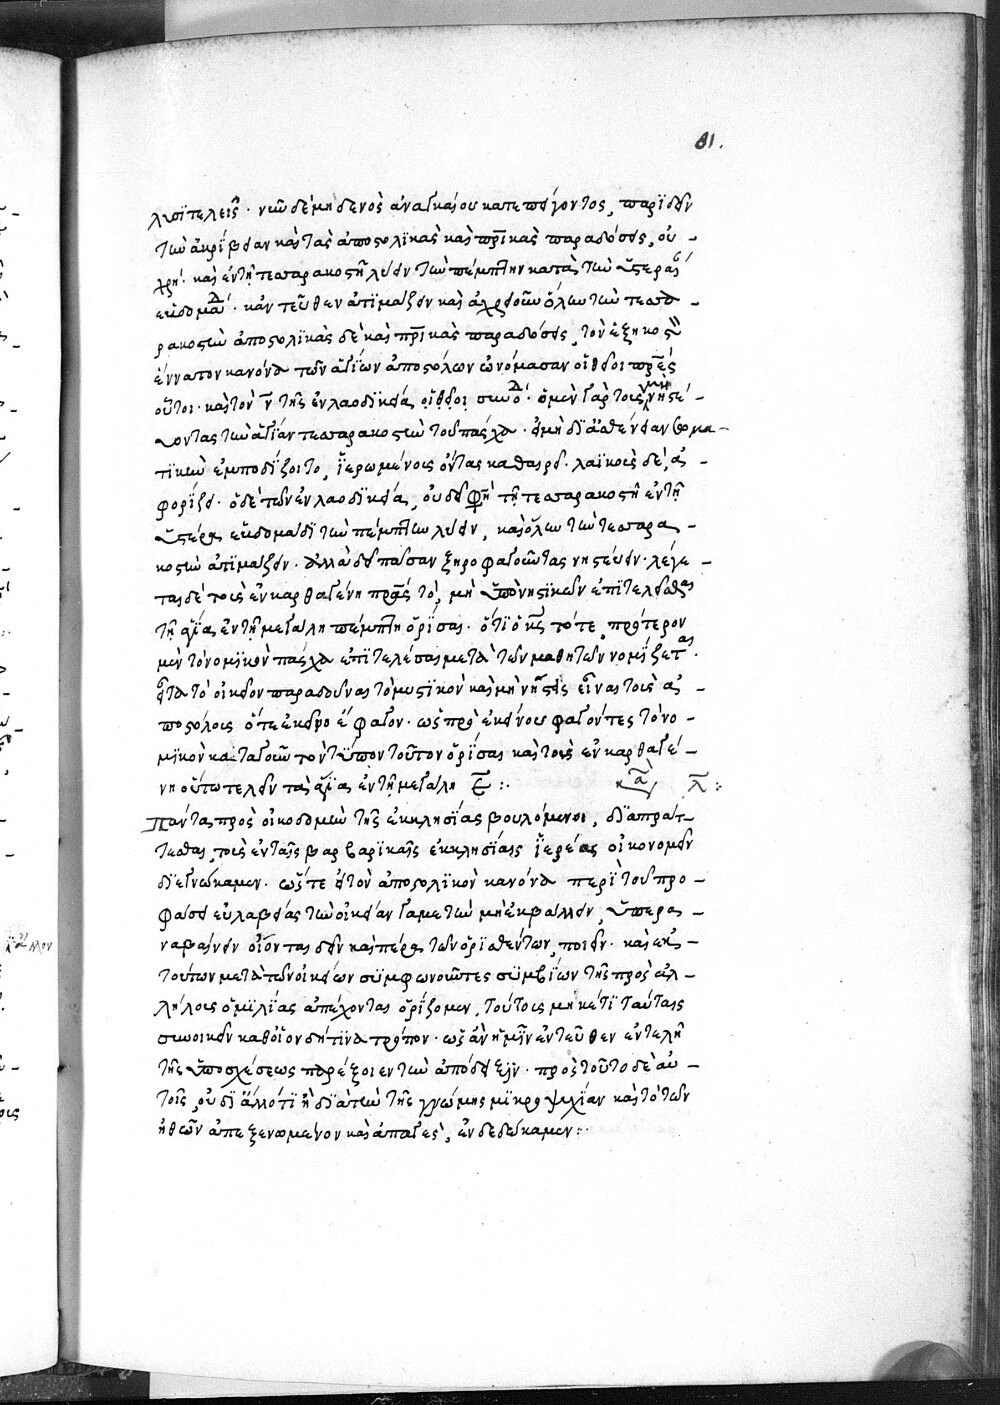 81.
λυσιτελεῖς· νῦν δὲ μηδενὸς ἀναγκαίου κατεπείγοντος, παριδεῖν
τὴν ἀκρίβειαν καὶ τὰς ἀποστολικὰς καὶ πρικὰς παραδόσεις, οὐ
χρή· καὶ ἐν τῇ τεσσαρακοστῇ λύειν τὴν πέμπτην κατὰ τὴν ὑστεραίαν
ἑβδομάδα· κἀντεῦθεν ἀτιμάζειν καὶ ἀχρειοῦν ὅλην τὴν τεσσα
ρακοστὴν ἀποστολικὰς δὲ καὶ πρικὰς παραδόσεις, τὸν ἑξηκοστὸν
ἔννατον κανόνα τῶν ἁγίων ἀποστόλων ὠνόμασαν οἱ θεῖοι πρες
οὗτοι· καὶ τὸν ν τῆς ἐν λαοδικείᾳ θείας συνόδου· ὁ μὲν γὰρ τοὺς μὴ νηστεύ
οντας τὴν ἁγίαν τεσσαρακοστὴν τοῦ πάσχα· εἰ μὴ δι ἀσθένειαν σωμα
τικὴν ἐμποδίζοιτο, ἱερωμένους ὄντας καθαιρεῖ· λαϊκοὺς δὲ, ἀ
φορίζει· ὁ δὲ τῶν ἐν λαοδικείᾳ, οὐ δεῖ φησὶ τῇ τεσσαρακοστῇ ἐν τῇ
ὑστέρᾳ ἑβδομάδι τὴν πέμπτην λύειν, καὶ ὅλην τὴν τεσσαρα
κοστὴν ἀτιμάζειν· ἀλλὰ δεῖ πᾶσαν ξηροφαγοῦντας νηστεύειν· λέγε
ται δὲ τοὺς ἐν καρθαγένῃ πρας τὸ, μὴ ὑπὸ νηστικῶν ἐπιτελεῖσθαι
τὰ ἅγια ἐν τῇ μεγάλῃ πέμπτῃ ὁρίσαι· ὅτι ὁ κς τότε, πρότερον
μὲν τὸ νομικὸν πάσχα ἐπιτελέσας μετὰ τῶν μαθητῶν νομίζεται·
εἶτα τὸ οἰκεῖον παραδοῦναι τὸ μυστικὸν καὶ μὴ νήστεις εἶναι τοὺς ἀ
ποστόλους ὅτε ἐκεῖνο ἔφαγον· ὡς πρὸ ἐκείνου φαγόντες τὸ νο
μικὸν κατὰ γοῦν τὸν τύπον τοῦτον ὁρίσαι καὶ τοὺς ἐν καρθαγέ
νῃ οὕτω τελεῖν τὰ ἅγια ἐν τῇ μεγάλῃ ε :·
κα λ :
Πάντα πρὸς οἰκοδομὴν τῆς ἐκκλησίας βουλόμενοι, διαπράτ
τεσθαι, τοὺς ἐν ταῖς βαρβαρικαῖς ἐκκλησίαις ἱερέας οἰκονομεῖν
διέγνωκαμεν· ὥστε εἰ τὸν ἀποστολικὸν κανόνα περὶ τοῦ προ
φάσει εὐλαβείας τὴν οἰκείαν γαμετὴν μὴ ἐκβάλλειν, ὑπερα
ναβαίνειν οἴονται δεῖν καὶ πέρα τῶν ὁρισθέντων, ποιεῖν· καὶ ἐκ
τούτων μετὰ τῶν οἰκείων συμφωνοῦντες συμβίων τῆς πρὸς ἀλ
λήλους ὁμιλίας ἀπέχονται ὁρίζομεν, τούτους μηκέτι ταύταις
συνοικεῖν καθ οἷον δήτινα τρόπον· ὡς ἂν ἡμῖν ἐντεῦθεν ἐντελῆ
τῆς ὑποσχέσεως παρέξοιεν τὴν ἀπόδειξιν· πρὸς τοῦτο δὲ αὐ
τοῖς, οὐ δι ἄλλό τι ἢ διὰ τὴν τῆς γνώμης μικροψυχίαν καὶ τὸ τῶν
ἠθῶν ἀπεξενωμένον καὶ ἀπαγὲς, ἐνδεδώκαμεν :·